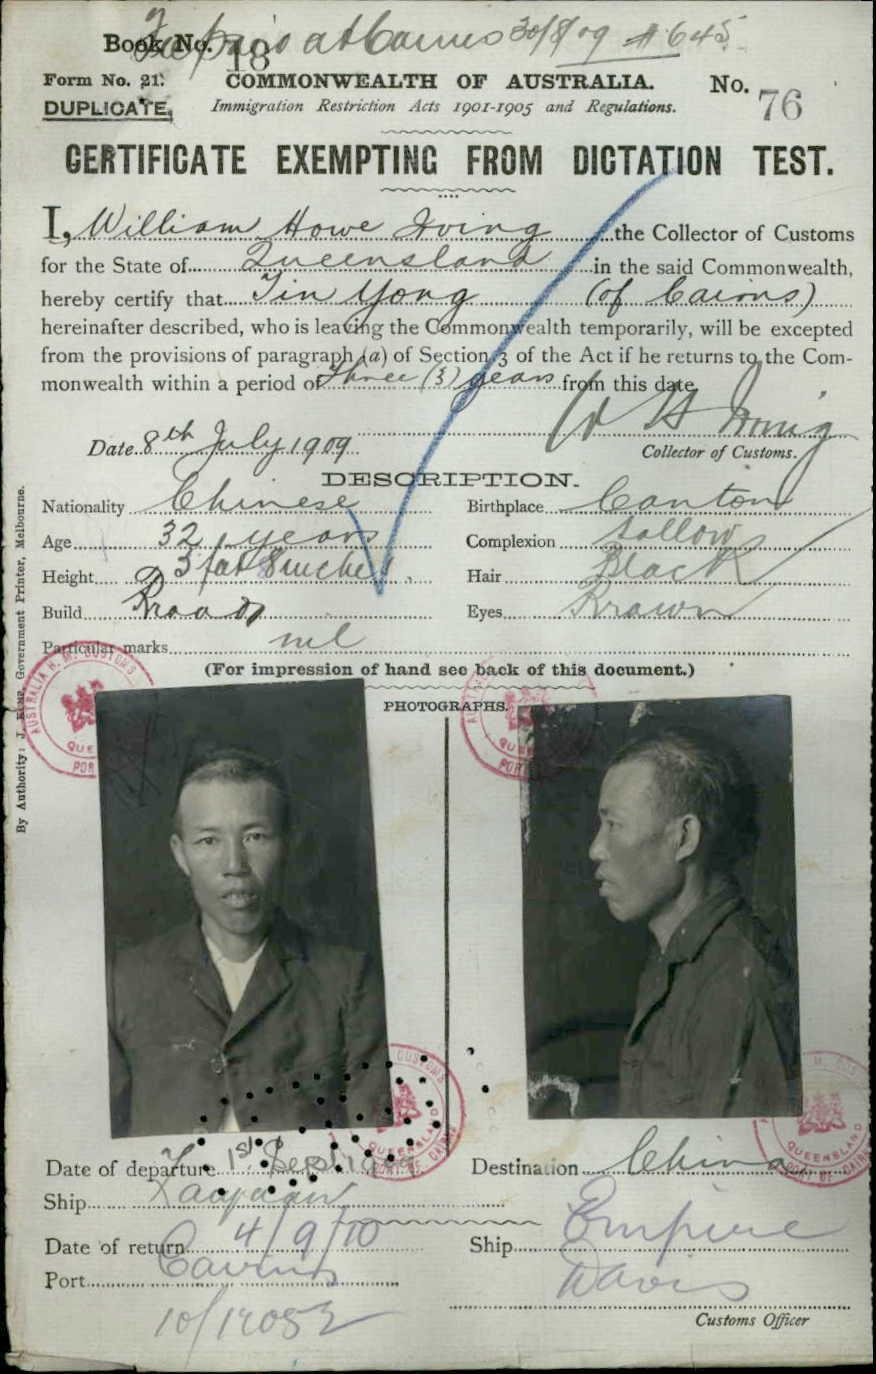 Book No. 18
at Cairns 30/8/09 # 645
Form No. 21.
COMMONWEALTH OF AUSTRALIA.
No. 76
DUPLICATE.
Immigration Restriction Acts 1901-1905 and Regulations.
CERTIFICATE EXEMPTING FROM DICTATION TEST.
I, William Howe Irving the Collector of Customs
for the State of Queensland in the said Commonwealth,
hereby certify that Tin Yong (of Cairns)
hereinafter described, who is leaving the Commonwealth temporarily, will be excepted
from the provisions of paragraph (a) of Section 3 of the Act if he returns to the Com-
monwealth within a period of three (3) years from this date.
W H Irving
Date 8th July 1909
Collector of Customs.
DESCRIPTION.
Nationality Chinese
Birthplace Canton
Age 32 years
Complexion Sallow
Height 5 feet 8 inches
Hair Black
Build Broad
Eyes Brown
Particular marks nil
(For impression of hand see back of this document.)
PHOTOGRAPHS.
By Authority: J. KEMP, Government Printer, Melbourne.
AUSTRALIA H. M. CUSTOMS
QUEENSLAND
PORT OF CAIRNS
Date of departure 1st Sept 1909
Destination China
Ship
Date of return 4/9/10
Ship Empire
Port Cairns
Davis
10/14053
Customs Officer